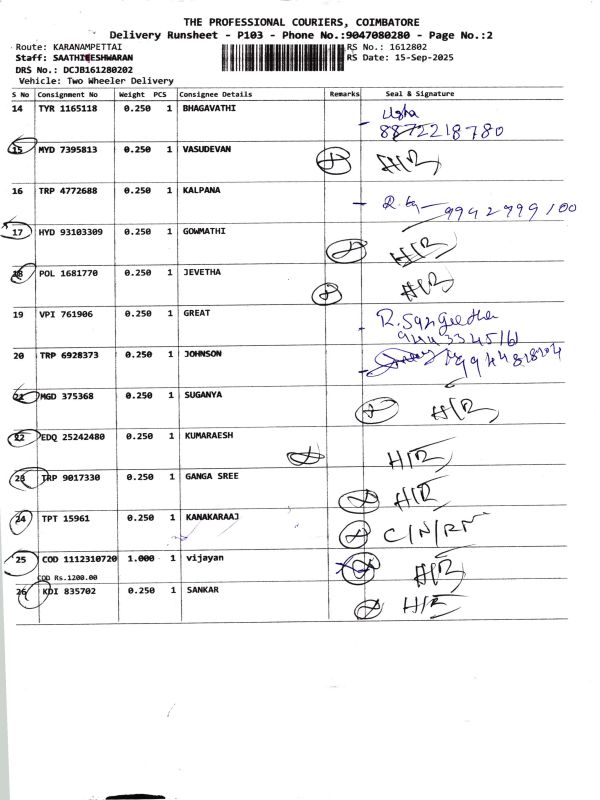 THE PROFESSIONAL COURIERS, COIMBATORE
Delivery Runsheet - P103 - Phone No.:9047080280 - Page No.:2
Route: KARANAMPETTAI RS No.: 1612802
Staff: SAATHIEESHWARAN RS Date: 15-Sep-2025
DRS No.: DCJB161280202
Vehicle: Two Wheeler Delivery
S No Consignment No Weight PCS Consignee Details Remarks Seal & Signature
14 TYR 1165118 0.250 1 BHAGAVATHI Usha
8872218780
15 MYD 7395813 0.250 1 VASUDEVAN H/R
16 TRP 4772688 0.250 1 KALPANA
17 HYD 93103309 0.250 1 GOWMATHI H/R
18 POL 1681770 0.250 1 JEVETHA H/R
19 VPI 761906 0.250 1 GREAT R. Sangeetha
20 TRP 6928373 0.250 1 JOHNSON
21 MGD 375368 0.250 1 SUGANYA H/R
22 EDQ 25242480 0.250 1 KUMARAESH H/R
23 TRP 9017330 0.250 1 GANGA SREE H/R
24 TPT 15961 0.250 1 KANAKARAAJ C/N/RN
25 COD 1112310720 1.000 1 vijayan H/R
COD Rs.1200.00
26 KDI 835702 0.250 1 SANKAR H/R